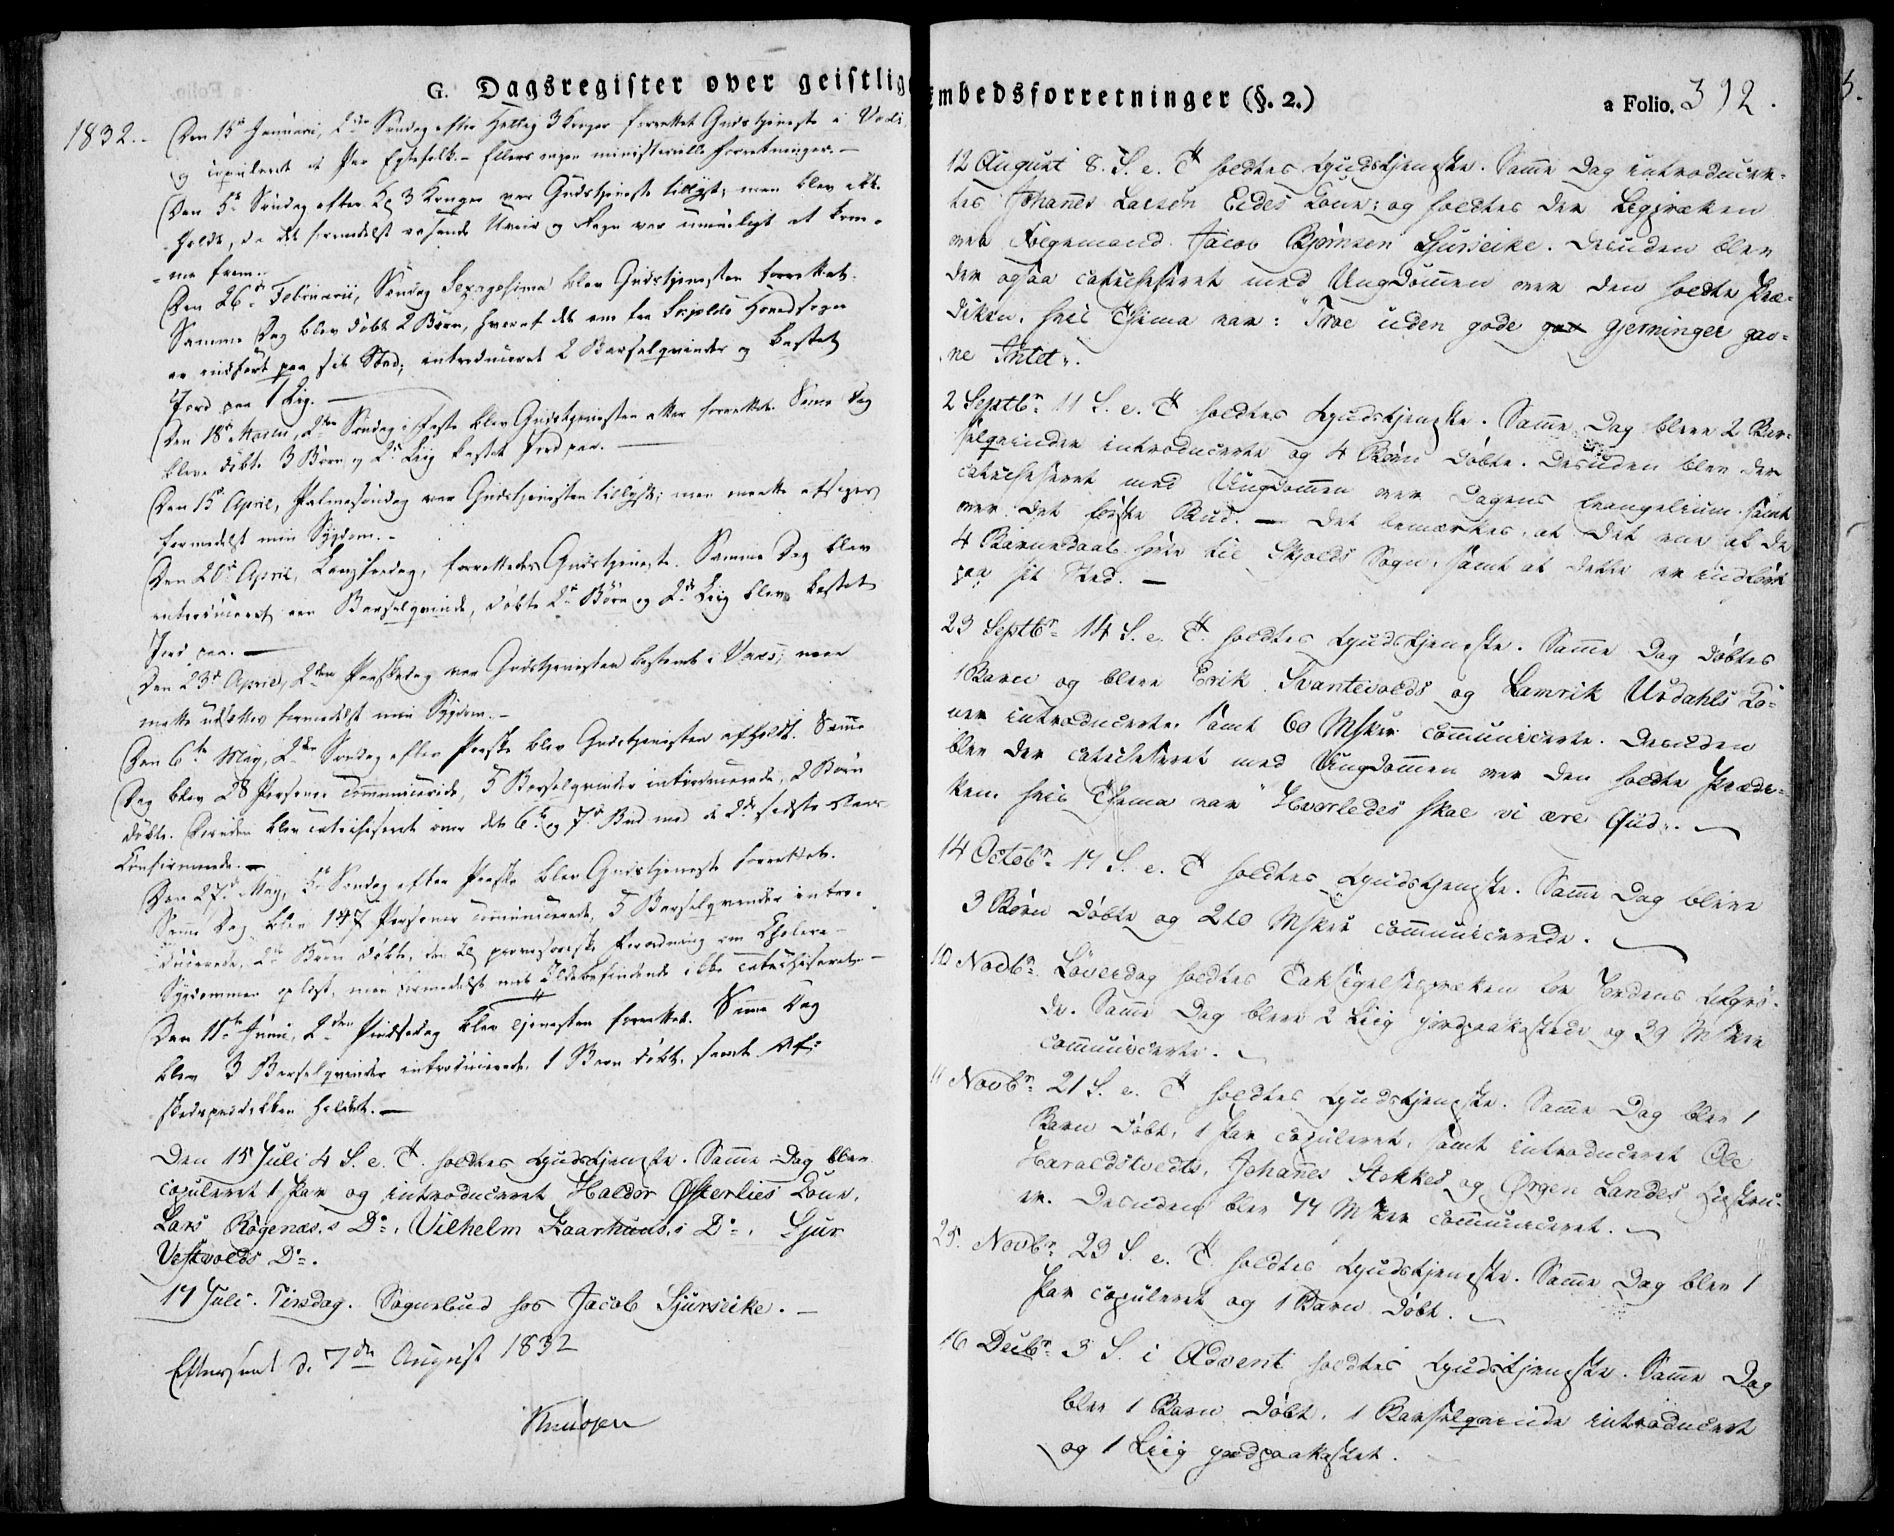 G. Dagsregister over geistlige Embedsforretninger (§. 2.)
a Folio. 392.
1832.
Den 15de Januari, 2den Søndag efter Hellig 3 Konger forrettet Gudstjeneste i Vads
og copuleret et Par Egtefolk. - Ellers ingen ministerielle Forretninger. -
Den 5te Søndag efter H 3 Konger var Gudstjeneste tillyst; men blev ikke
holdt, da det formedelst rasende Uveir og Regn var umueligt at kom-
me frem.
Den 26de Februarii, Søndag Sexagesima blev Gudstjenesten forrettet.
Samme Dag blev døbt 2 Børn, hvoraf det ene fra Skjolds Hovedsogn
er indført paa sit Sted; introduceret 2 Barselqvinder og kastet
Jord paa 1 Lig. -
Den 18de Martii, 2den Søndag i Faste blev Gudstjenesten atter forrettet. Samme Dag
bleve døbte 3 Børn og 2de Liig kastet Jord paa. -
Den 15de April, Palmesøndag var Gudstjenesten tillyst; men maatte afsiges
formedelst min Sygdom. -
Den 20de April, Langfredag, forrettedes Gudstjeneste. Samme Dag blev
introduceret een Barselqvinde, døbt 2de Børn og 2de Liig blev kastet
Jord paa. -
Den 23de April, 2den Paaskedag var Gudstjenesten bestemt i Vads; men
maatte udsættes formedelst min Sygdom. -
Den 6te May, 2den Søndag efter Paaske blev Gudstjenesten afholdt. Samme
Dag blev 28 Personer communicerede, 5 Barselqvinder introducerede, 2 Børn
døbte. Desuden blev catechiseret over det 6te og 7de Bud med de 2de sidste Aars
Confirmerede. -
Den 27de May, 5te Søndag efter Paaske blev Gudstjeneste forrettet.
Samme Dag blev 147 Personer communicerede, 5 Barselqvinder intro-
ducerede, 2de Børn døbte, den Kl provisoriske Forordning om Cholera-
Sygdommen oplæst, men formedelst mit Ildebefindende ikke catechiseret. -
Den 11te Juni, 2den Pindsedag blev tjenesten forrettet. Samme Dag
blev 3 Barselqvinder introducerede, 1 Barn døbt, samt Af-
skedsprædikken holdet. -
Den 15 Juli 4 S. e. T. holdtes Gudstjeneste. Samme Dag blev
copuleret 1 Par og introduceret Haldor Østerlies Kone,
Lars Røgenæs,s Do, Vilhelm Haarhuus,s Do, Sjur
Vestvolds Do.
17 Juli. Tirsdag. Sognebud hos Jacob Sjurseike. -
Efterseet d. 7de August 1832
Knudsen
12 August 8. S. e. T. holdtes Gudstjeneste. Samme Dag introducer-
tes Johannes Larsen Eides Kone; og holdtes der Ligpræken
over Folgemand Jacob Bjørnsen Sjurseike. Desuden blev
der ogsaa catechiseret med Ungdommen over den holdte Præ-
diken, hvis Thema var: "Troe uden gode gjerninger gav-
ne Intet".
2 Septbr. 11 S. e. T. holdtes Gudstjeneste. Samme Dag bleve 2 Bar-
selqvinder introducerte og 4 Børn døbte. Desuden blev der
catechiseret med Ungdommen over Dagens Evangelium samt
over det første Bud. - Det bemærkes, at det ene af de
4 Barnedaab hører til Skjolds Sogn, samt at dette er indført
paa sit Sted. -
23 Septbr. 14 S. e. T. holdtes Gudstjeneste. Samme Dag døbtes
1 Barn og bleve Erik Svantevolds og Lamrik Urdahls Ko-
ner introducerte, samt 60 Msker communicerte. Desuden
blev der catechiseret med Ungdommen over den holdte Prædi-
ken, hvis Thema var "Hvorledes skal vi ære Gud". -
14 Octobr. 17 S. e. T. holdtes Gudstjeneste. Samme Dag bleve
3 Børn døbte og 210 Msker communicerede.
10 Novbr. Løverdag holdtes Taksigelsespræken for Jordens Afgrø-
de. Samme Dag bleve 2 Liig jordpaakastede og 39 Msker
communicerte.
11 Novbr. 21 S. e. T. holdtes Gudstjeneste. Samme Dag blev 1
Barn døbt, 1 Par copuleret, samt introduceret Ole
Haraldstvedts, Johannes Stokkes og Ørgen Landes Hustru-
er. Desuden blev 77 Msker communiceret.
25. Novbr. 23 S. e. T. holdtes Gudstjeneste. Samme Dag blev 1
Par copuleret og 1 Barn døbt.
16 Decbr. 3 S. i Advent holdtes Gudstjeneste. Samme Dag
blev 1 Barn døbt, 1 Barselqvinde introduceret
og 1 Liig jordpaakastet.